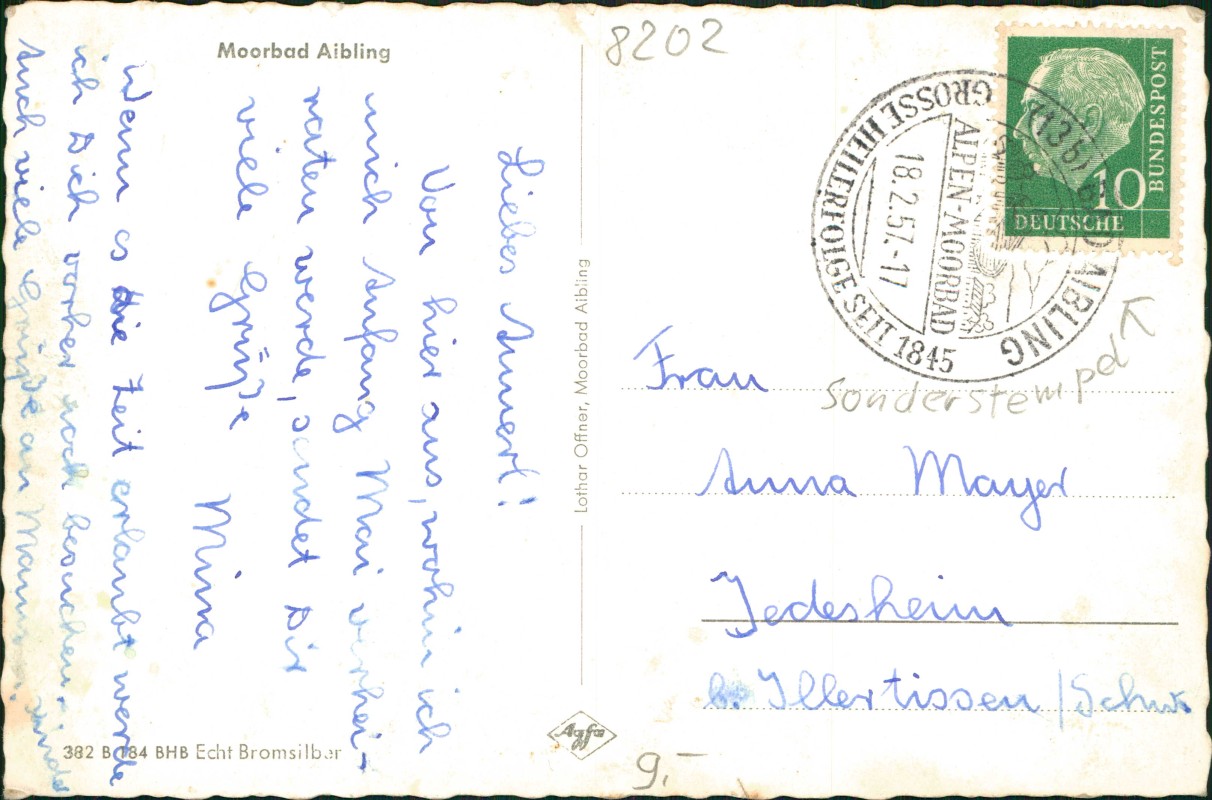 Moorbad Aibling
Liebes Annerl!
Von hier aus, wohin ich
mich Anfang Mai verhei-
raten werde, sendet Dir
viele Grüße
Mina
Wenn es die Zeit erlaubt werde
ich Dich vorher noch besuchen.
Auch viele Grüße an Mann
382 B 184 BHB Echt Bromsilber
Lothar Offner, Moorbad Aibling
Agfa
8202
GROSSE HEILERFOLGE SEIT 1845
BAD AIBLING
ALPEN-MOORBAD
18.2.57.-17
10
DEUTSCHE
BUNDESPOST
Sonderstempel
Frau
Anna Mayer
Jedesheim
b. Illertissen/Schwb
9.-